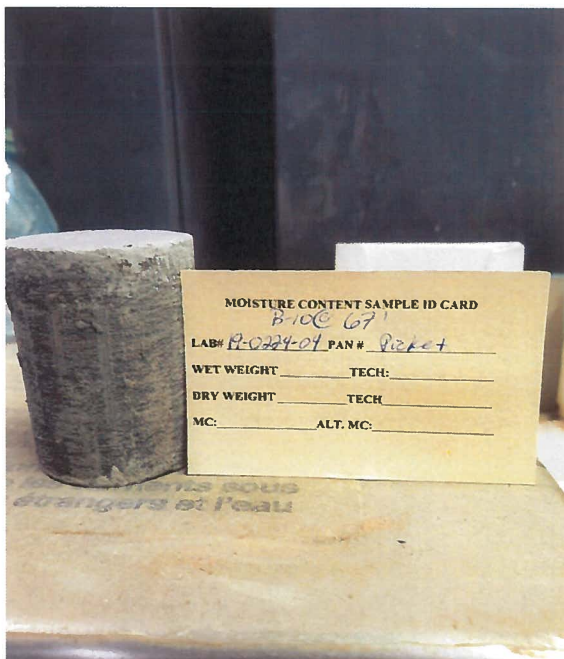 MOISTURE CONTENT SAMPLE ID CARD
B-10@ 67'
LAB# 19-0224-04 PAN #
WET WEIGHT TECH:
DRY WEIGHT TECH
MC: ALT. MC:
sous
étrangers et l'eau